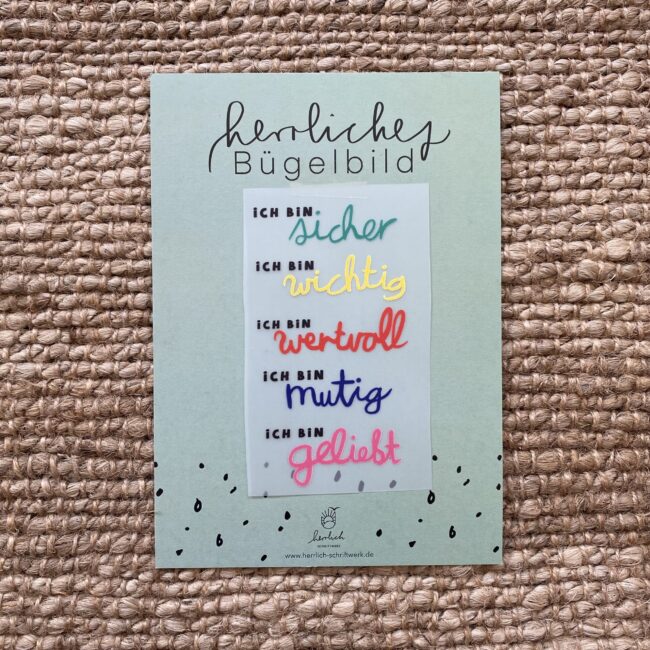 herrliches
Bügelbild
iCH BiN
sicher
iCH BiN
wichtig
iCH BiN
wertvoll
iCH BiN
mutig
iCH BiN
geliebt
herrlich
SCHRIFTWERK
www.herrlich-schriftwerk.de